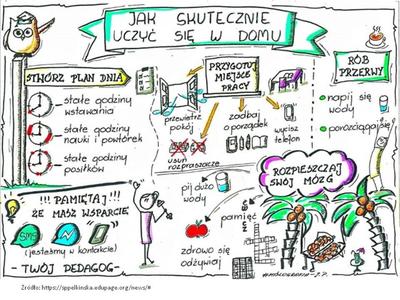 JAK SKUTECZNIE
UCZYĆ SIĘ W DOMU
STWÓRZ PLAN DNIA
stałe godziny
wstawania
stałe godziny
nauki i powtórek
stałe godziny
posiłków
PRZYGOTUJ
MIEJSCE
PRACY
przewietrz
pokój
zadbaj
o porządek
wycisz
telefon
usuń
rozpraszacze
RÓB
PRZERWY
napij się
wody
porozciągaj się
!!! PAMIĘTAJ!!!
ŻE MASZ WSPARCIE
SMS
(jesteśmy w kontakcie)
- TWÓJ PEDAGOG -
ROZPIESZCZAJ
SWÓJ MÓZG
pij dużo
wody
pamięć
zdrowo się
odżywiaj
Źródło: https://sppelkinska.edupage.org/news/#